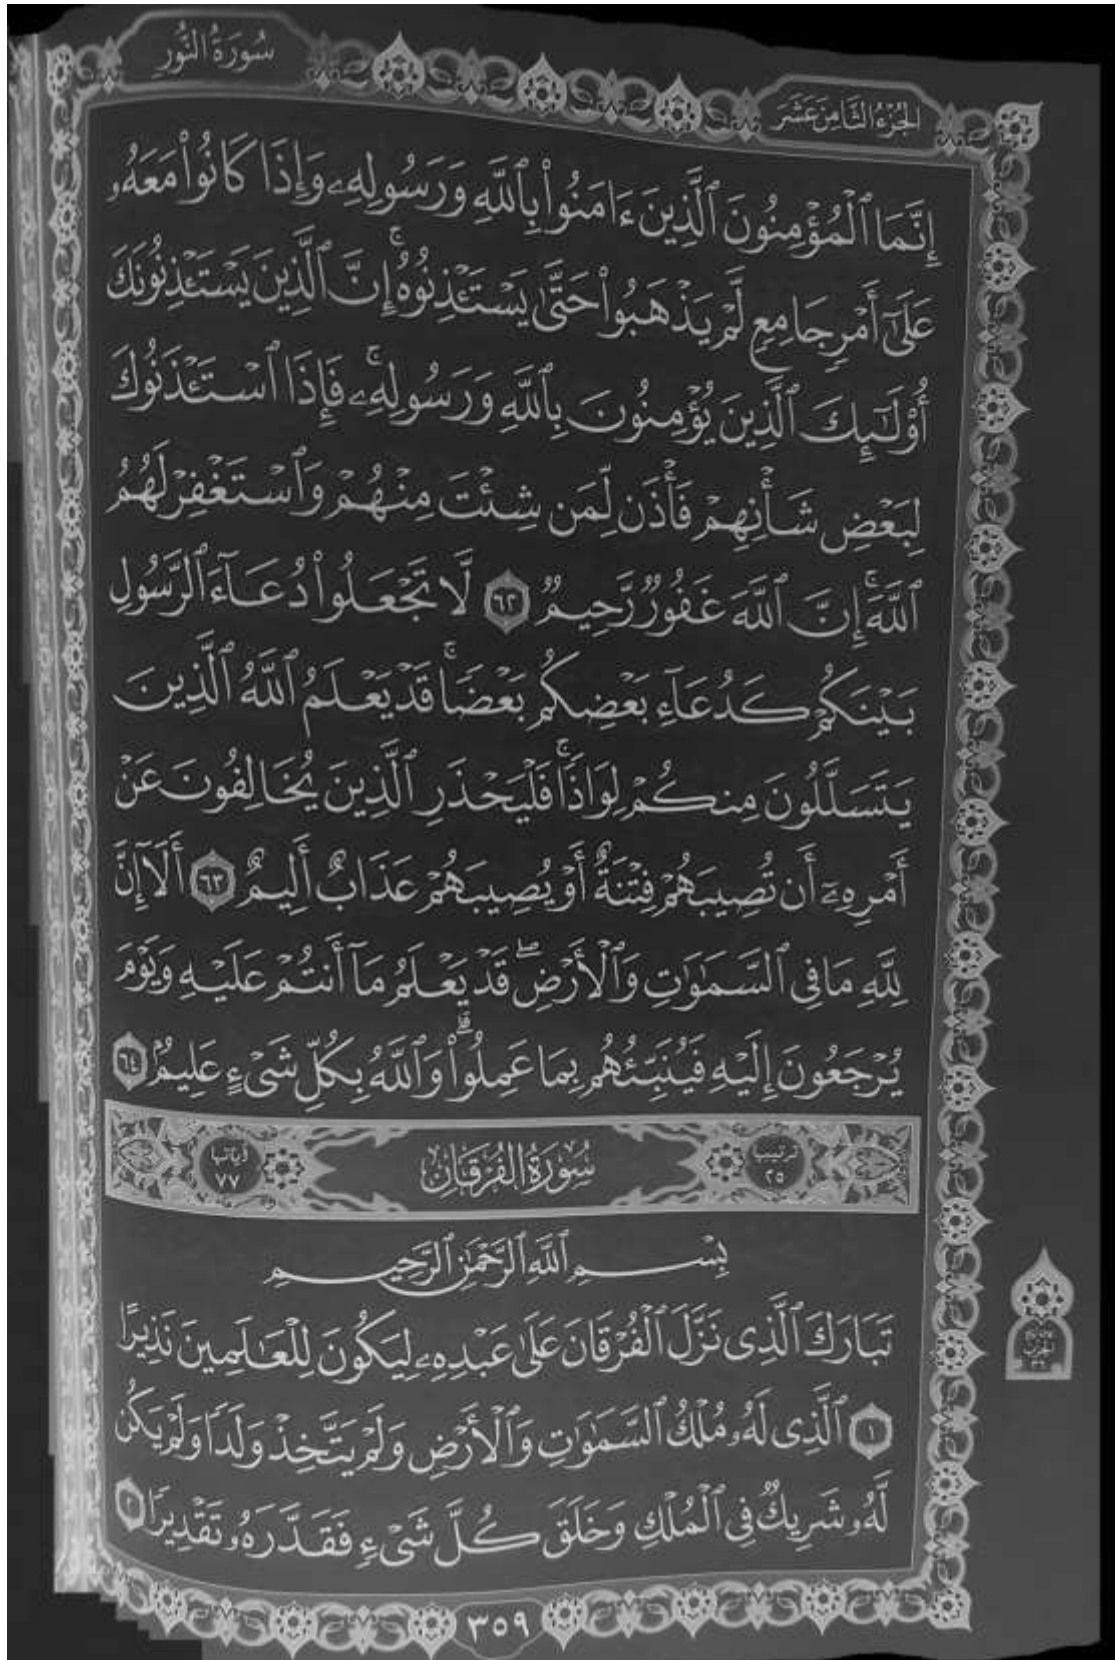 سُورَةُ النُّورِ
الجُزْءُ الثَّامِنَ عَشَرَ
إِنَّمَا ٱلْمُؤْمِنُونَ ٱلَّذِينَ ءَامَنُوا۟ بِٱللَّهِ وَرَسُولِهِۦ وَإِذَا كَانُوا۟ مَعَهُۥ
عَلَىٰٓ أَمْرٍ جَامِعٍ لَّمْ يَذْهَبُوا۟ حَتَّىٰ يَسْتَـْٔذِنُوهُ ۚ إِنَّ ٱلَّذِينَ يَسْتَـْٔذِنُونَكَ
أُو۟لَـٰٓئِكَ ٱلَّذِينَ يُؤْمِنُونَ بِٱللَّهِ وَرَسُولِهِۦ ۚ فَإِذَا ٱسْتَـْٔذَنُوكَ
لِبَعْضِ شَأْنِهِمْ فَأْذَن لِّمَن شِئْتَ مِنْهُمْ وَٱسْتَغْفِرْ لَهُمُ
ٱللَّهَ ۚ إِنَّ ٱللَّهَ غَفُورٌ رَّحِيمٌ ٦٢ لَّا تَجْعَلُوا۟ دُعَآءَ ٱلرَّسُولِ
بَيْنَكُمْ كَدُعَآءِ بَعْضِكُم بَعْضًا ۚ قَدْ يَعْلَمُ ٱللَّهُ ٱلَّذِينَ
يَتَسَلَّلُونَ مِنكُمْ لِوَاذًا ۚ فَلْيَحْذَرِ ٱلَّذِينَ يُخَالِفُونَ عَنْ
أَمْرِهِۦٓ أَن تُصِيبَهُمْ فِتْنَةٌ أَوْ يُصِيبَهُمْ عَذَابٌ أَلِيمٌ ٦٣ أَلَآ إِنَّ
لِلَّهِ مَا فِى ٱلسَّمَـٰوَٰتِ وَٱلْأَرْضِ ۖ قَدْ يَعْلَمُ مَآ أَنتُمْ عَلَيْهِ وَيَوْمَ
يُرْجَعُونَ إِلَيْهِ فَيُنَبِّئُهُم بِمَا عَمِلُوا۟ ۗ وَٱللَّهُ بِكُلِّ شَىْءٍ عَلِيمٌۢ ٦٤
ترتيبها ٢٥ سُورَةُ الْفُرْقَانِ آياتها ٧٧
بِسْمِ ٱللَّهِ ٱلرَّحْمَـٰنِ ٱلرَّحِيمِ
تَبَارَكَ ٱلَّذِى نَزَّلَ ٱلْفُرْقَانَ عَلَىٰ عَبْدِهِۦ لِيَكُونَ لِلْعَـٰلَمِينَ نَذِيرًا
١ ٱلَّذِى لَهُۥ مُلْكُ ٱلسَّمَـٰوَٰتِ وَٱلْأَرْضِ وَلَمْ يَتَّخِذْ وَلَدًا وَلَمْ يَكُن
لَّهُۥ شَرِيكٌ فِى ٱلْمُلْكِ وَخَلَقَ كُلَّ شَىْءٍ فَقَدَّرَهُۥ تَقْدِيرًا ٢
٣٥٩